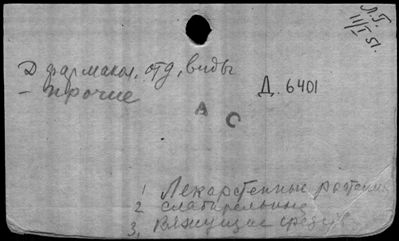 Л.Г.
11/I 51.
Д фармакол. отд, виды
- прочие
Д. 6401
А С
1 Лекарственные растения
2 слабительные
3, Вяжущие средств